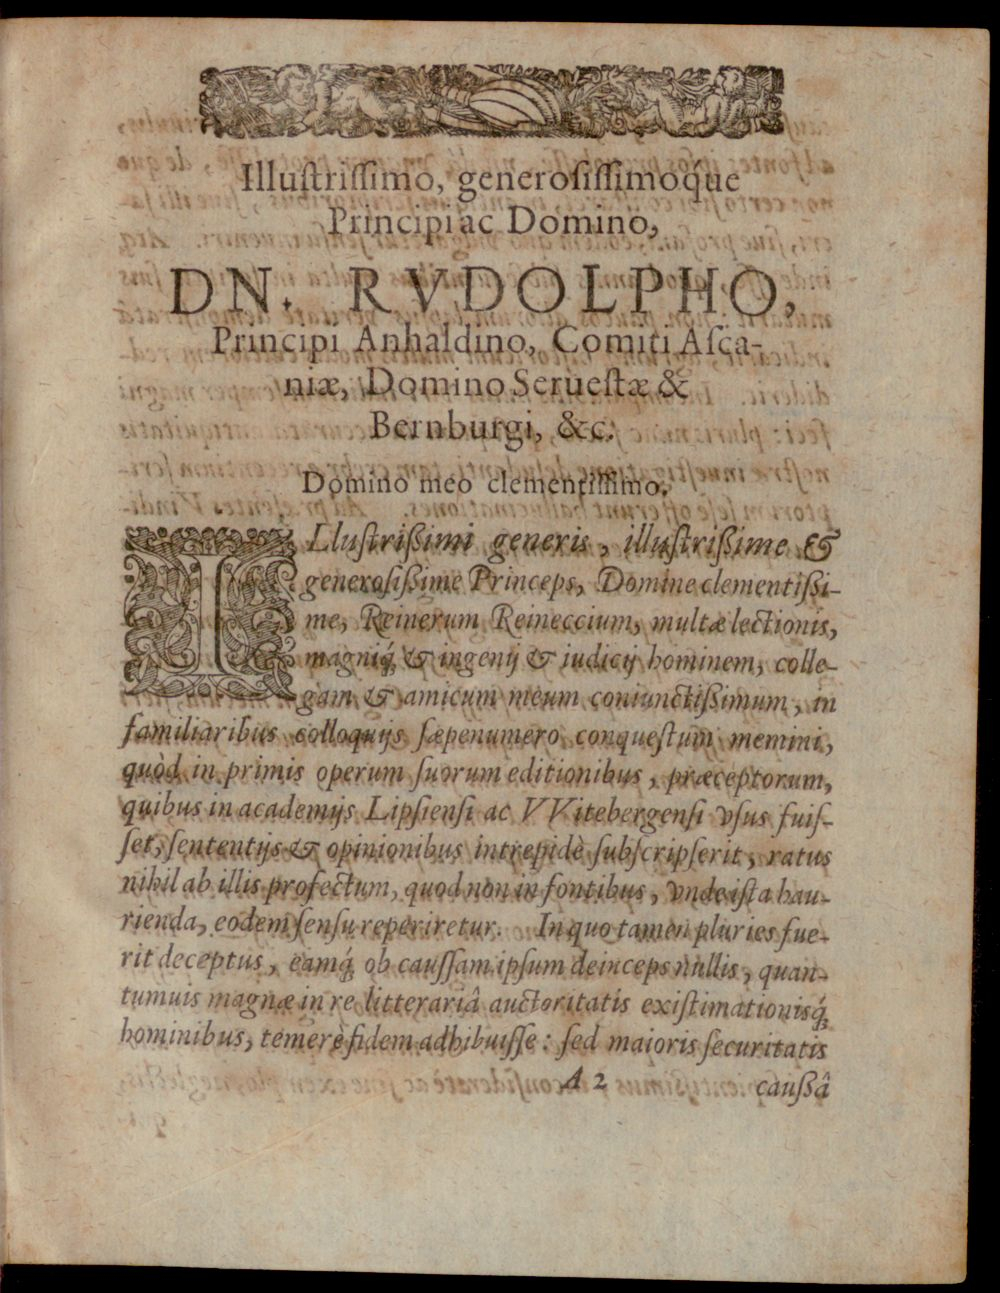 Illuſtriſſimo, generoſiſſimoq́ue
Principi ac Domino,
DN. RVDOLPHO,
Principi Anhaldino, Comiti Aſca-
niæ, Domino Serueſtæ &
Bernburgi, &c.
Domino meo clementiſſimo.
ILluſtriſsimi generis, illuſtriſsime &
generoſiſsime Princeps, Domine clementiſsi-
me, Reinerum Reineccium, multæ lectionis,
magniq́; & ingenij & iudicij hominem, colle-
gam & amicum meum coniunctiſsimum, in
familiaribus colloquijs ſæpenumero conqueſtum memini,
quòd in primis operum ſuorum editionibus, præceptorum,
quibus in academijs Lipſienſi ac VVitebergenſi vſus fuiſ-
ſet, ſententijs & opinionibus intrepidè ſubſcripſerit, ratus
nihil ab illis profectum, quod non in fontibus, vnde iſta hau-
rienda, eodem ſenſu reperiretur. In quo tamen pluries fue-
rit deceptus, eamq́; ob cauſſam ipſum deinceps nullis, quan-
tumuis magnæ in re litterariâ auctoritatis exiſtimationisq́;
hominibus, temerè fidem adhibuiſſe: ſed maioris ſecuritatis
A 2
cauſsâ